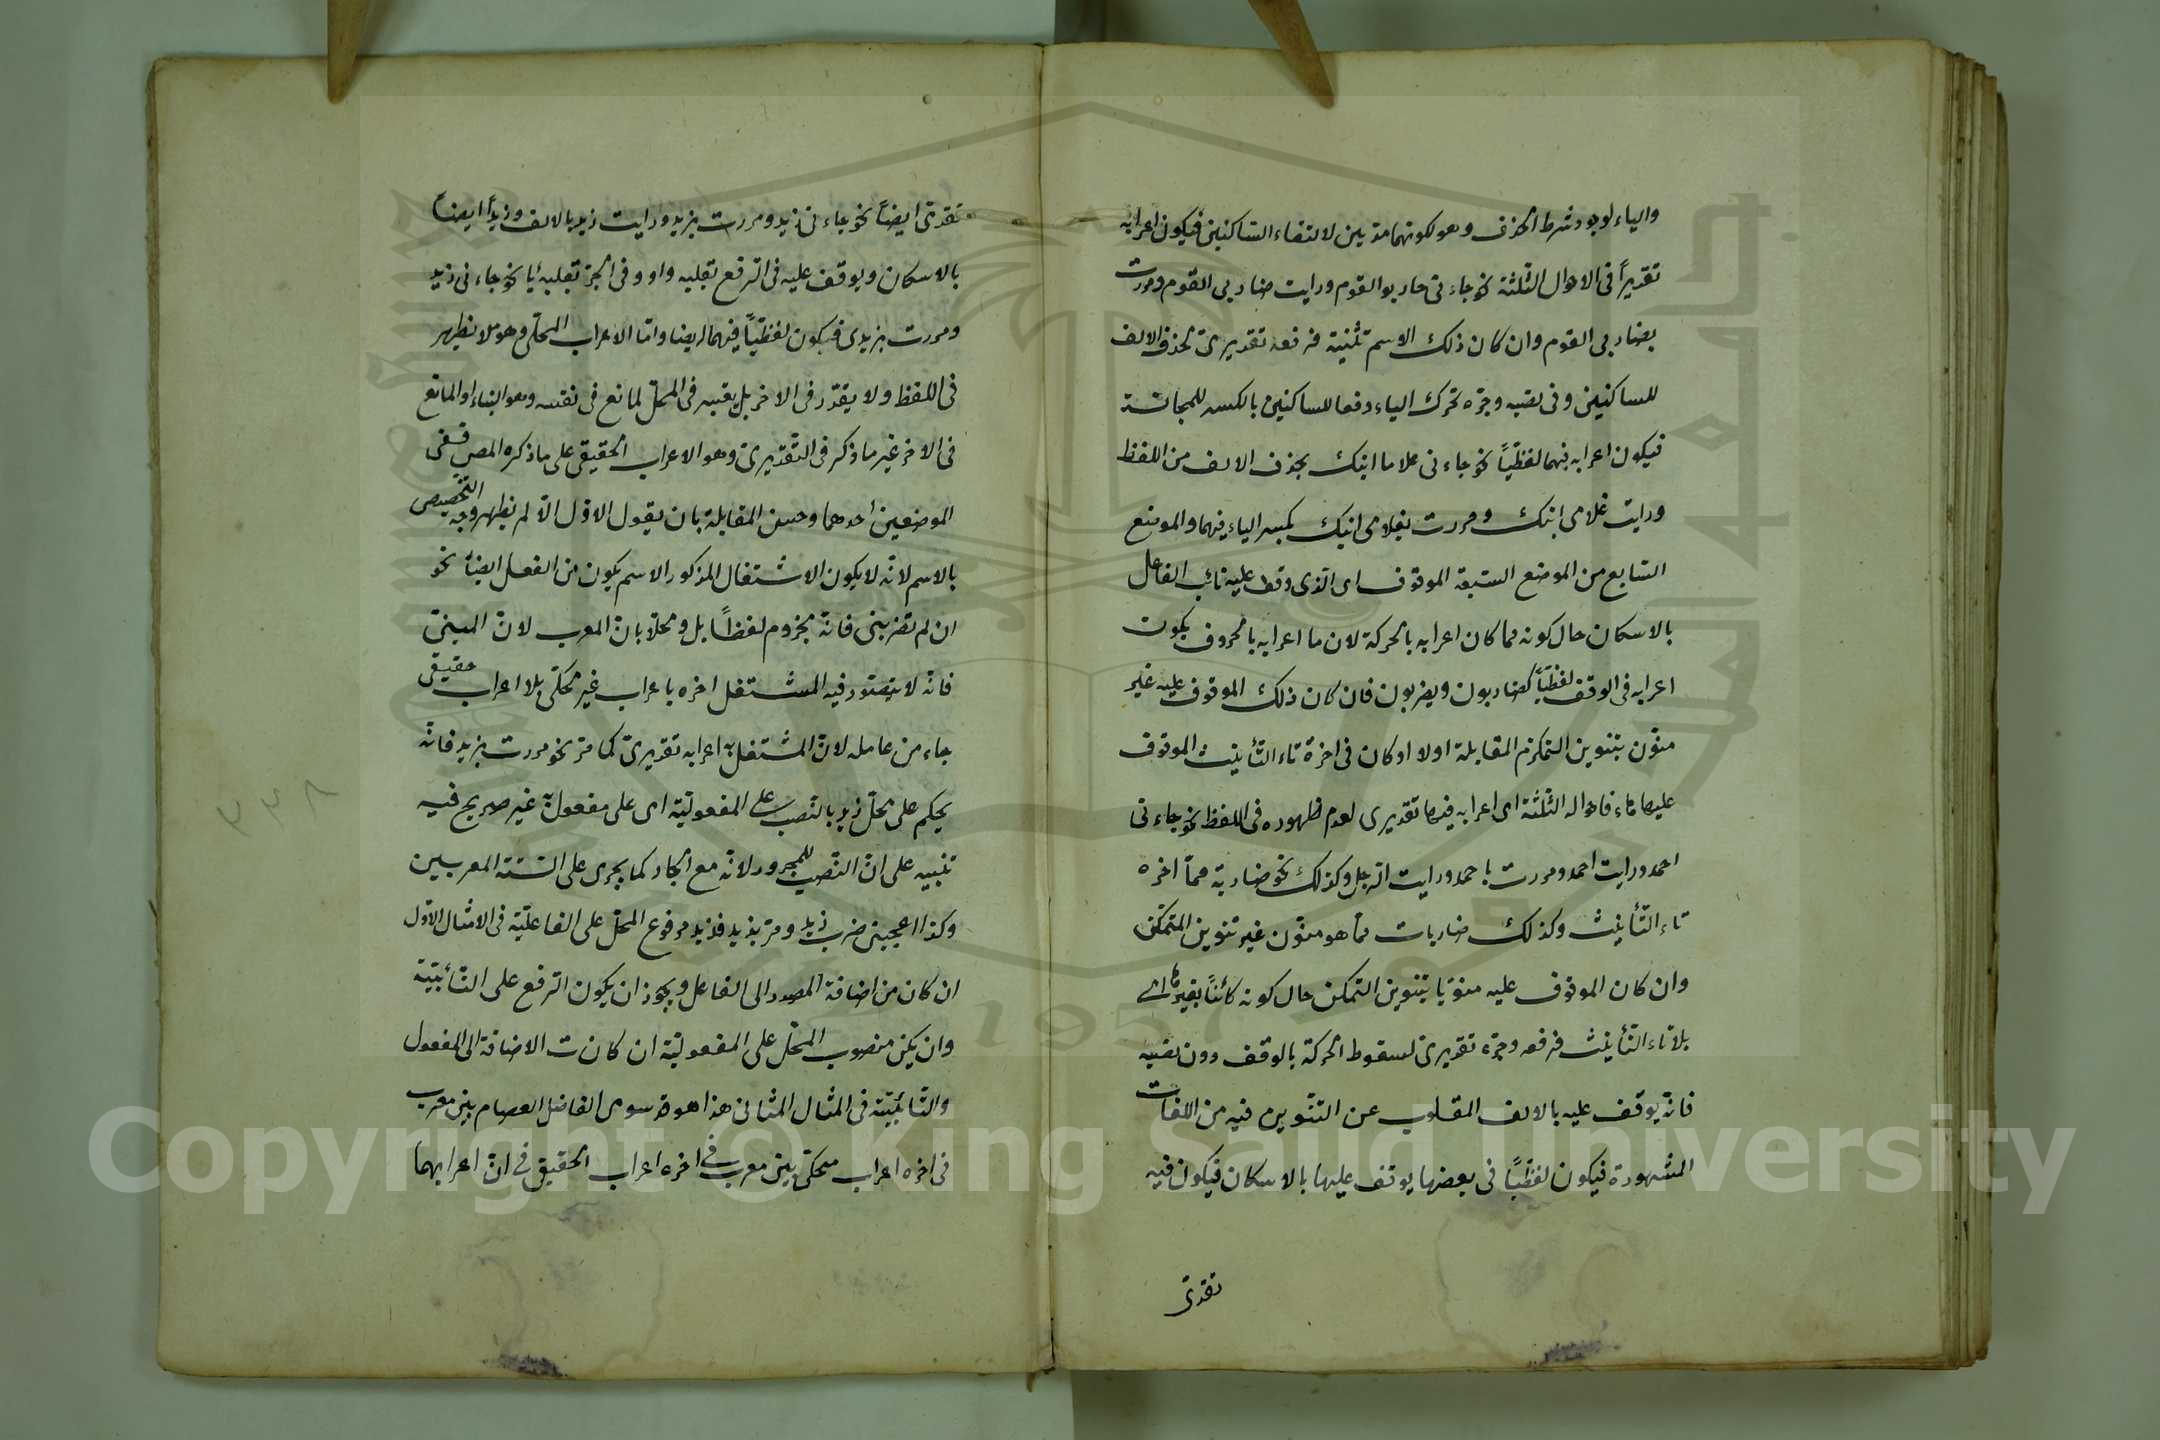 والياء لوجود شرط الحذف وهو كونهما مدتين لالتقاء الساكنين فيكون اعرابه
تقديراً فى الاحوال الثلثة نحو جاءنى ضاربوا القوم ورايت ضاربى القوم ومررت
بضاربى القوم وان كان ذلك الاسم تثنية فرفعه تقديرى بحذف الالف
للساكنين وفى نصبه وجره تحرك الياء دفعا للساكنين بالكسر للمجانسة
فيكون اعرابه فيهما لفظيّاً نحو جاءنى غلاما ابنك بحذف الالف من اللفظ
ورايت غلامى ابنك ومررت بغلامى ابنك بكسر الياء فيهما والموضع
السّابع من الموضع السّبعة الموقوف اى الّذى وقف عليه نائب الفاعل
بالاسكان حال كونه مما كان اعرابه بالحركة لان ما اعرابه بالحروف يكون
اعرابه فى الوقف لفظيّاً كضاربون ويضربون فان كان ذلك الموقوف عليه غير
منوّن بتنوين التمكن المقابلة اولا او كان فى اخره تاء التّأنيث الموقوف
عليها هاء فاحواله الثّلثة اى اعرابه فيها تقديرى لعدم ظهوره فى اللفظ نحو جاءنى
احمد ورايت احمد ومررت باحمد ورايت الرجل وكذلك نحو ضاربة ممّا اخره
تاء التّأنيث وكذلك ضاربات ممّا هو منوّن غير تنوين المتمكن
وان كان الموقوف عليه منوّنا بتنوين التمكن حال كونه كائناً بغيرها اى
بلا تاء التّأنيث فرفعه وجرّه تقديرىّ لسقوط الحركة بالوقف دون نصبه
فانّه يوقف عليه بالالف المقلوب عن التّنوين فيه من اللغات
المشهورة فيكون لفظيّاً فى بعضها يوقف عليها بالاسكان فيكون فيه
تقدى
تقدى ايضاً نحو جاءنى زيد ومررت بزيد ورايت زيد بالالف وزيداً ايضاً
بالاسكان ويوقف عليه فى الرفع بقلبه واو وفى الجر بقلبه يا نحو جاءنى زيد
ومررت بزيدى فيكون لفظيّاً فيهما ايضا وامّا الاعراب المحلّى وهو ملا يظهر
فى اللفظ ولا يقدّر فى الاخر بل يعتبر فى المحلّ لمانع فى نفسه وهو البناء او المانع
فى الاخر غير ما ذكر فى التّقديرىّ وهو الاعراب الحقيقى على ما ذكره المص ففى
الموضعين احدهما وحسن المقابلة بان يقول الاوّل الّا لم يظهر وجه التّخصيص
بالاسم لانّه لا يكون الاشتغال المذكور الاسم يكون من الفعل ايضاً نحو
ان لم تضربنى فانّه مجزوم لفظاً بل ومحلّا بانّ المعرب لانّ المبنىّ
فانّه لا يتصوّر فيه المشتغل اخره باعراب غير محكىّ بلا اعراب حقيقى
جاء من عامله لانّ المشتغل به اعرابه تقديرىّ كما مرّ نحو مررت بزيد فانّه
يحكم على محلّ زيد بالنّصب على المفعوليّة اى على مفعول به غير صريح فيه
تنبيه على انّ النّصب للمجرور لانّه مع الجار كما يجرى على السّنة المعربين
وكذا اعجبنى ضرب زيد ومرّ بزيد فزيد مرفوع المحلّ على الفاعليّة فى الامثال الاوّل
ان كان من اضافة المصدر الى الفاعل ويجوز ان يكون الرفع على النّائبيّة
وان يكن منصوب المحلّ على المفعوليّة ان كان ت الاضافة الى المفعول
والنّائبيّة فى المثال الثانى هذا هو سوى الفاضل العصام بين معرب
فى اخره اعراب محكىّ بين معرب فى اخره اعراب الحقيقى فى انّ اعرابهما
٣٣٨
Copyright © King Saud University
1957